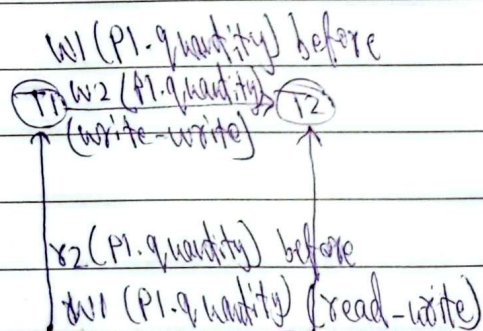 W1 (P1.quantity) before
T1 W2 (P1.quantity) T2
(write-write)
r2 (P1.quantity) before
W1 (P1.quantity) (read-write)